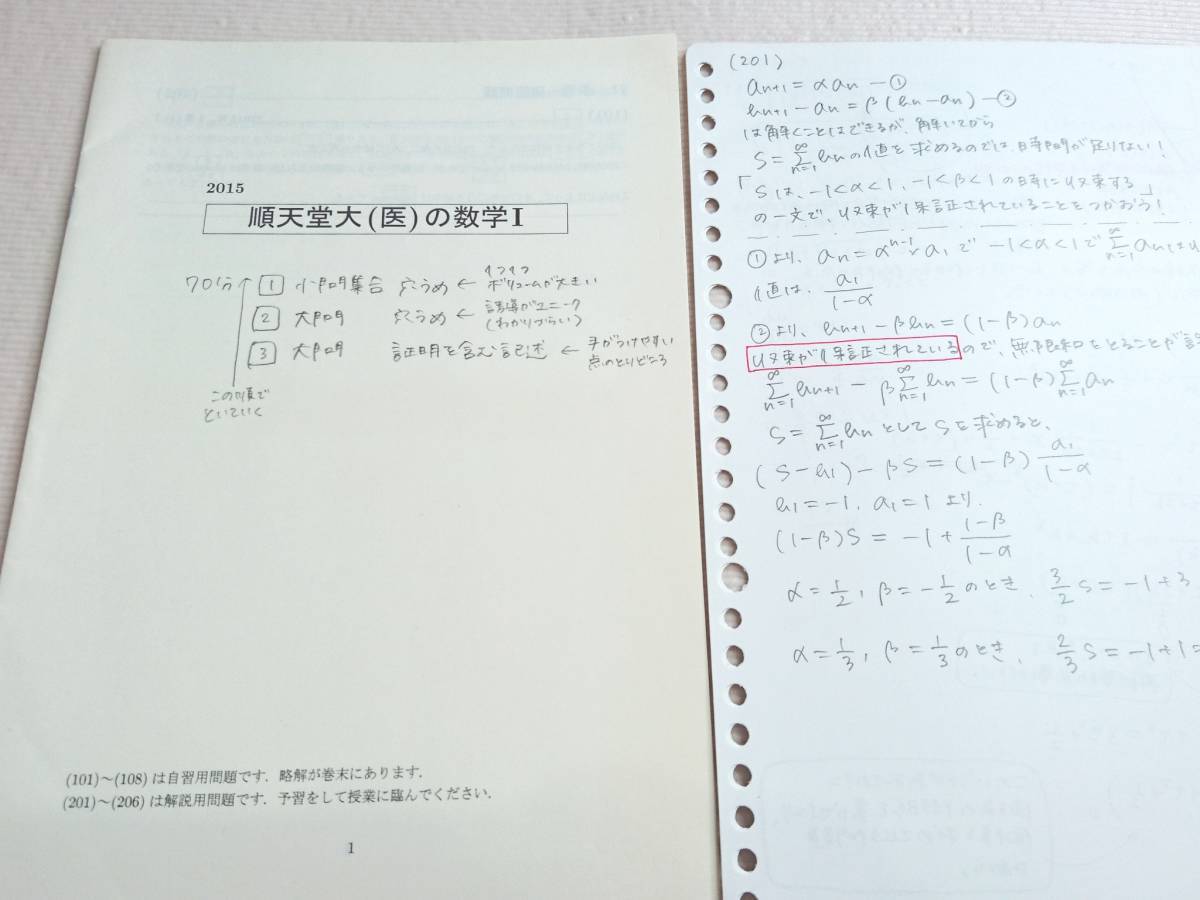 2015
順天堂大(医)の数学I
70分
1 小問集合 穴うめ ← 1つ1つボリュームが大きい
2 大問 穴うめ ← 誘導がユニーク(わかりづらい)
3 大問 証明を含む記述 ← 手がつけやすい
点のとりどころ
この順で
といていく
(101)～(108) は自習用問題です．略解が巻末にあります．
(201)～(206) は解説用問題です．予習をして授業に臨んでください．
1
(201)
an+1 = αan ー①
bn+1 − an = β(bn − an) ー②
は解くことはできるが、解いてから
S = Σ[n=1→∞] bn の値を求めるのでは、時間が足りない！
「Sは、−1<α<1、−1<β<1の時に収束する」
の一文で、収束が保証されていることをつかおう！
①より、an = α^(n−1)・a1 で −1<α<1で Σ[n=1→∞] anは収
値は、a1/(1−α)
②より、bn+1 − βbn = (1−β)an
収束が保証されているので、無限和をとることが
Σ[n=1→∞] bn+1 − β Σ[n=1→∞] bn = (1−β) Σ[n=1→∞] an
S = Σ[n=1→∞] bn としてSを求めると、
(S − b1) − βS = (1−β) a1/(1−α)
b1 = −1, a1 = 1 より、
(1−β)S = −1 + (1−β)/(1−α)
α = 1/2, β = −1/2 のとき、3/2 S = −1+3
α = 1/3, β = 1/3 のとき、2/3 S = −1+1 =